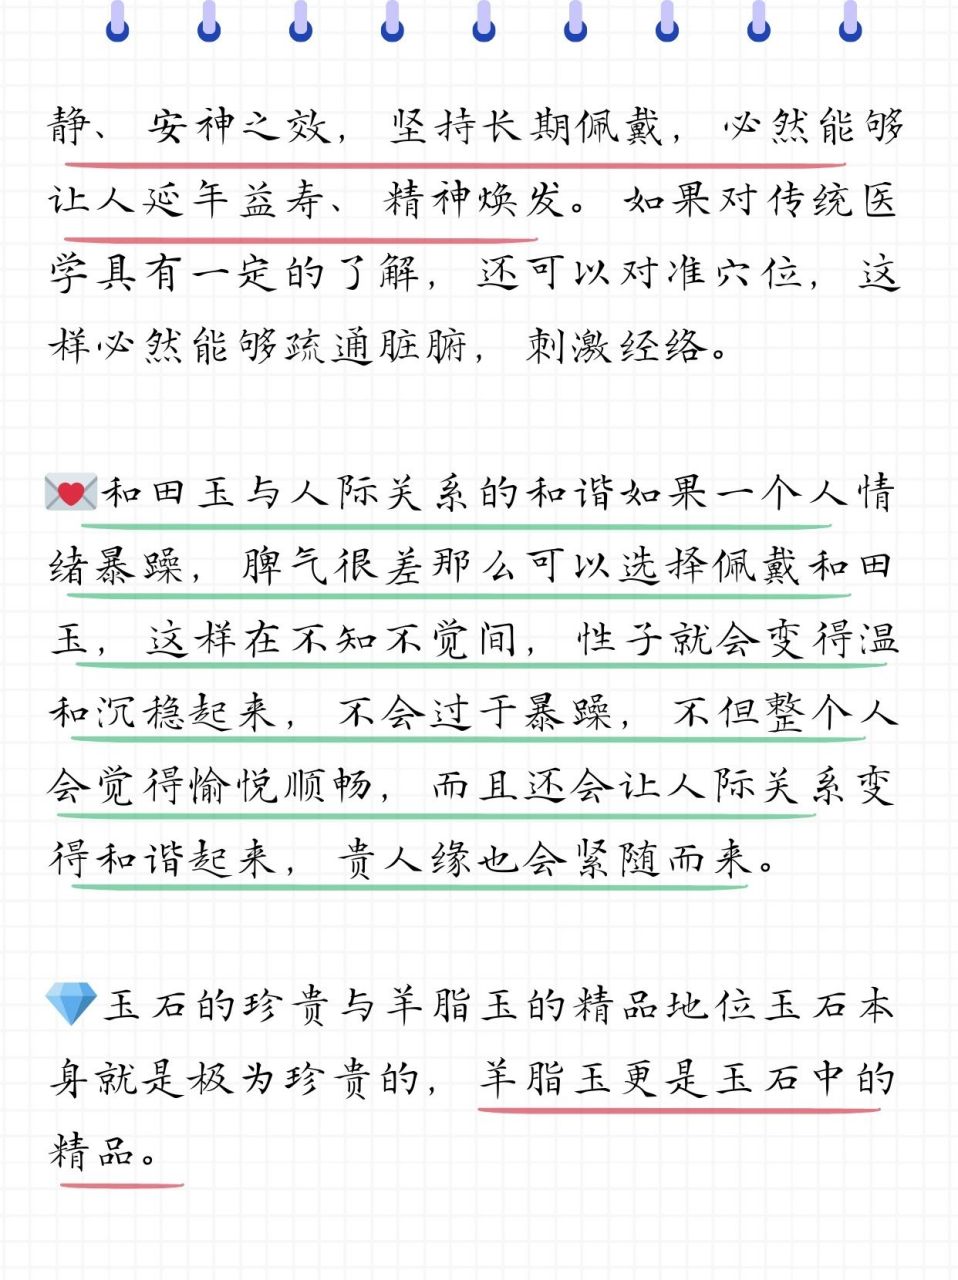 静、安神之效，坚持长期佩戴，必然能够
让人延年益寿、精神焕发。如果对传统医
学具有一定的了解，还可以对准穴位，这
样必然能够疏通脏腑，刺激经络。
💌和田玉与人际关系的和谐如果一个人情
绪暴躁，脾气很差那么可以选择佩戴和田
玉，这样在不知不觉间，性子就会变得温
和沉稳起来，不会过于暴躁，不但整个人
会觉得愉悦顺畅，而且还会让人际关系变
得和谐起来，贵人缘也会紧随而来。
💎玉石的珍贵与羊脂玉的精品地位玉石本
身就是极为珍贵的，羊脂玉更是玉石中的
精品。